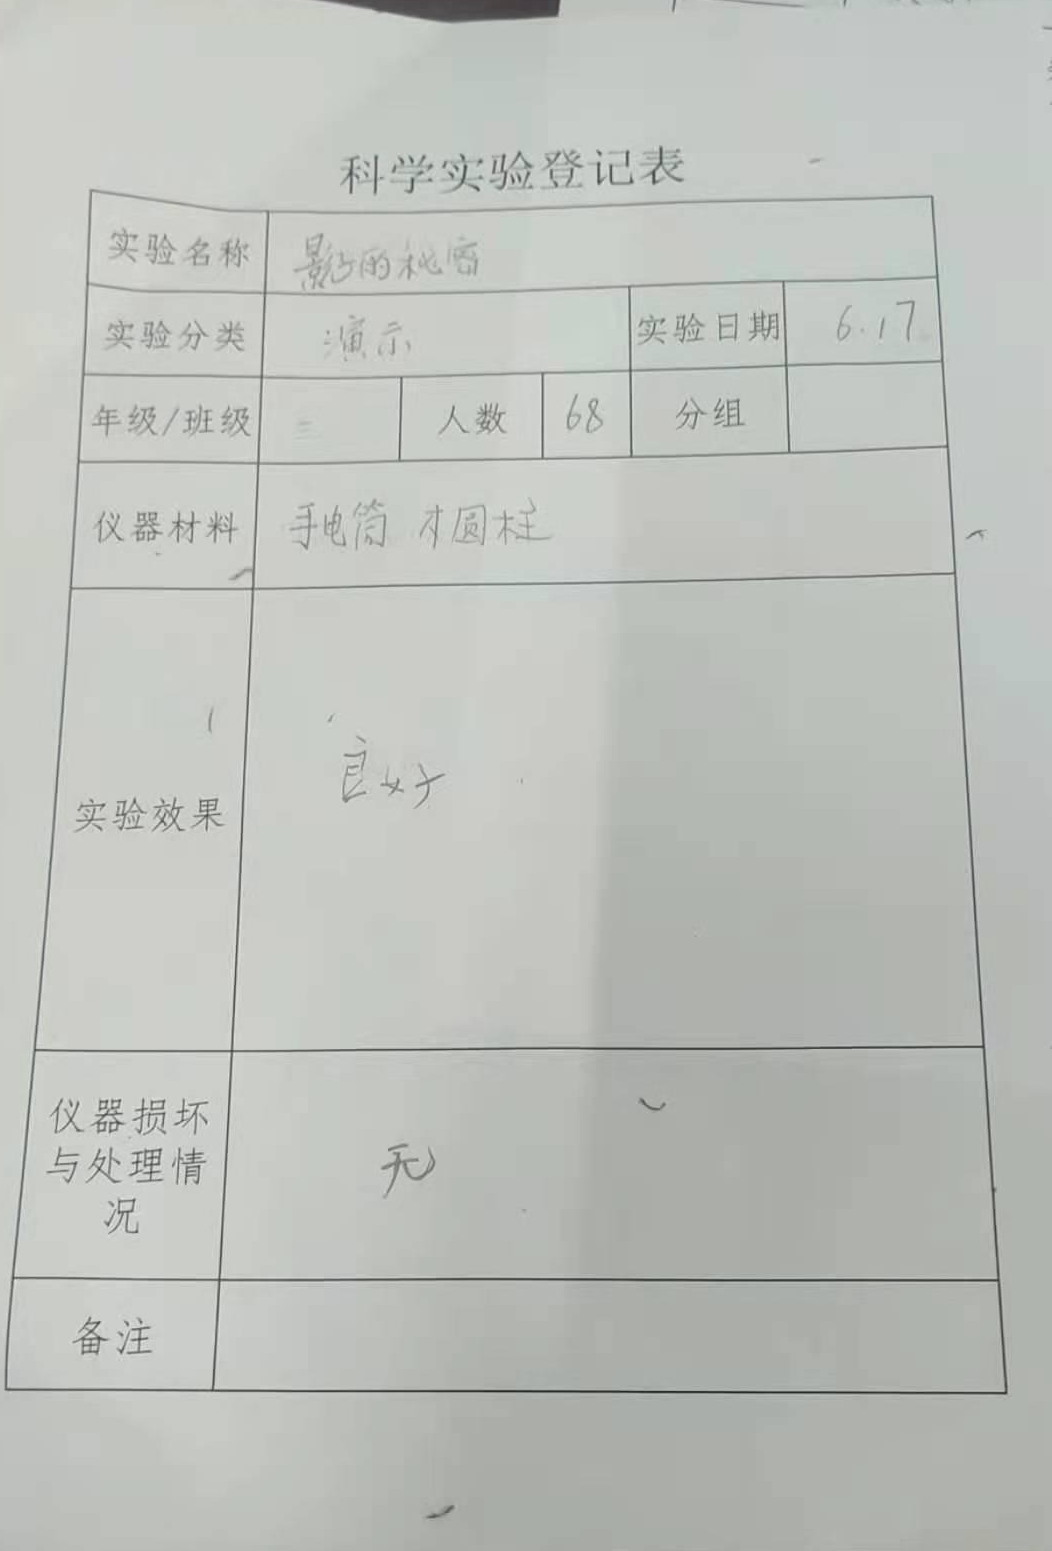 科学实验登记表
实验名称 影子的秘密
实验分类 演示 实验日期 6.17
年级/班级 三 人数 68 分组
仪器材料 手电筒 木圆柱
实验效果 良好
仪器损坏
与处理情
况
无
备注